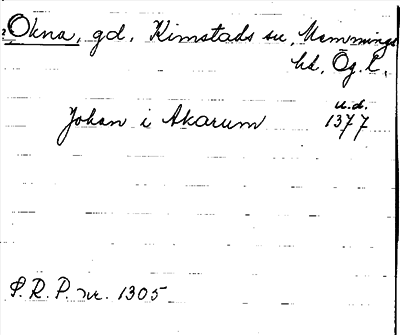 Okna, gd, Kimstads sn, Memmings
hd, Ög. L.
u.d.
Johan i Akarum 1377
S. R. P. nr. 1305